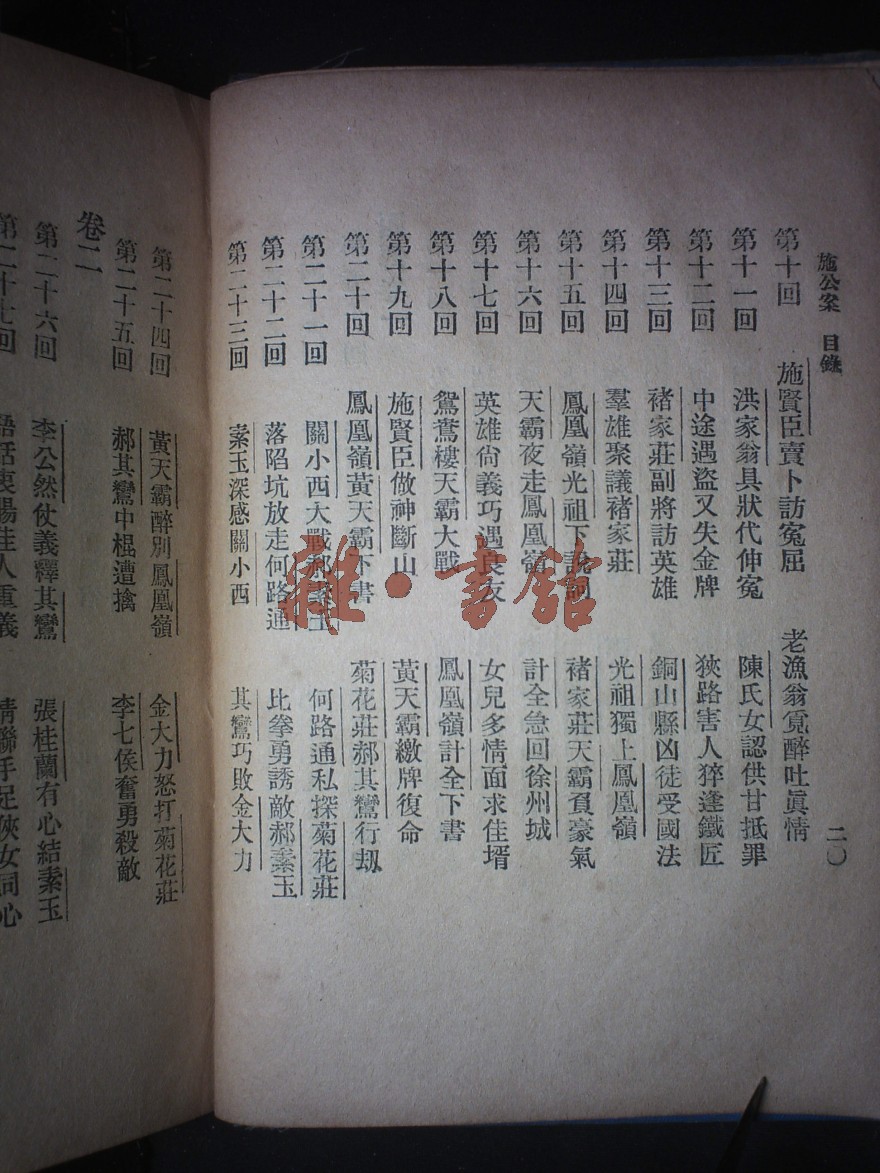 施公案 目錄 二〇
第十回 施賢臣賣卜訪冤屈 老漁翁覓醉吐眞情
第十一回 洪家翁具狀代伸冤 陳氏女認供甘抵罪
第十二回 中途遇盜又失金牌 狹路害人猝逢鐵匠
第十三回 褚家莊副將訪英雄 銅山縣凶徒受國法
第十四回 羣雄聚議褚家莊 光祖獨上鳳凰嶺
第十五回 鳳凰嶺光祖下說詞 褚家莊天霸負豪氣
第十六回 天霸夜走鳳凰嶺 計全急回徐州城
第十七回 英雄尙義巧遇良友 女兒多情面求佳壻
第十八回 鴛鴦樓天霸大戰 鳳凰嶺計全下書
第十九回 施賢臣做神斷山 黃天霸繳牌復命
第二十回 鳳凰嶺黃天霸下書 菊花莊郝其鸞行刼
第二十一回 關小西大戰郝素玉 何路通私探菊花莊
第二十二回 落陷坑放走何路通 比拳勇誘敵郝素玉
第二十三回 素玉深感關小西 其鸞巧敗金大力
第二十四回 黃天霸醉別鳳凰嶺 金大力怒打菊花莊
第二十五回 郝其鸞中棍遭擒 李七侯奮勇殺敵
卷二
第二十六回 李公然仗義釋其鸞 張桂蘭有心結素玉
第二十七回 佳人重義 情聯手足俠女同心
雜·書館